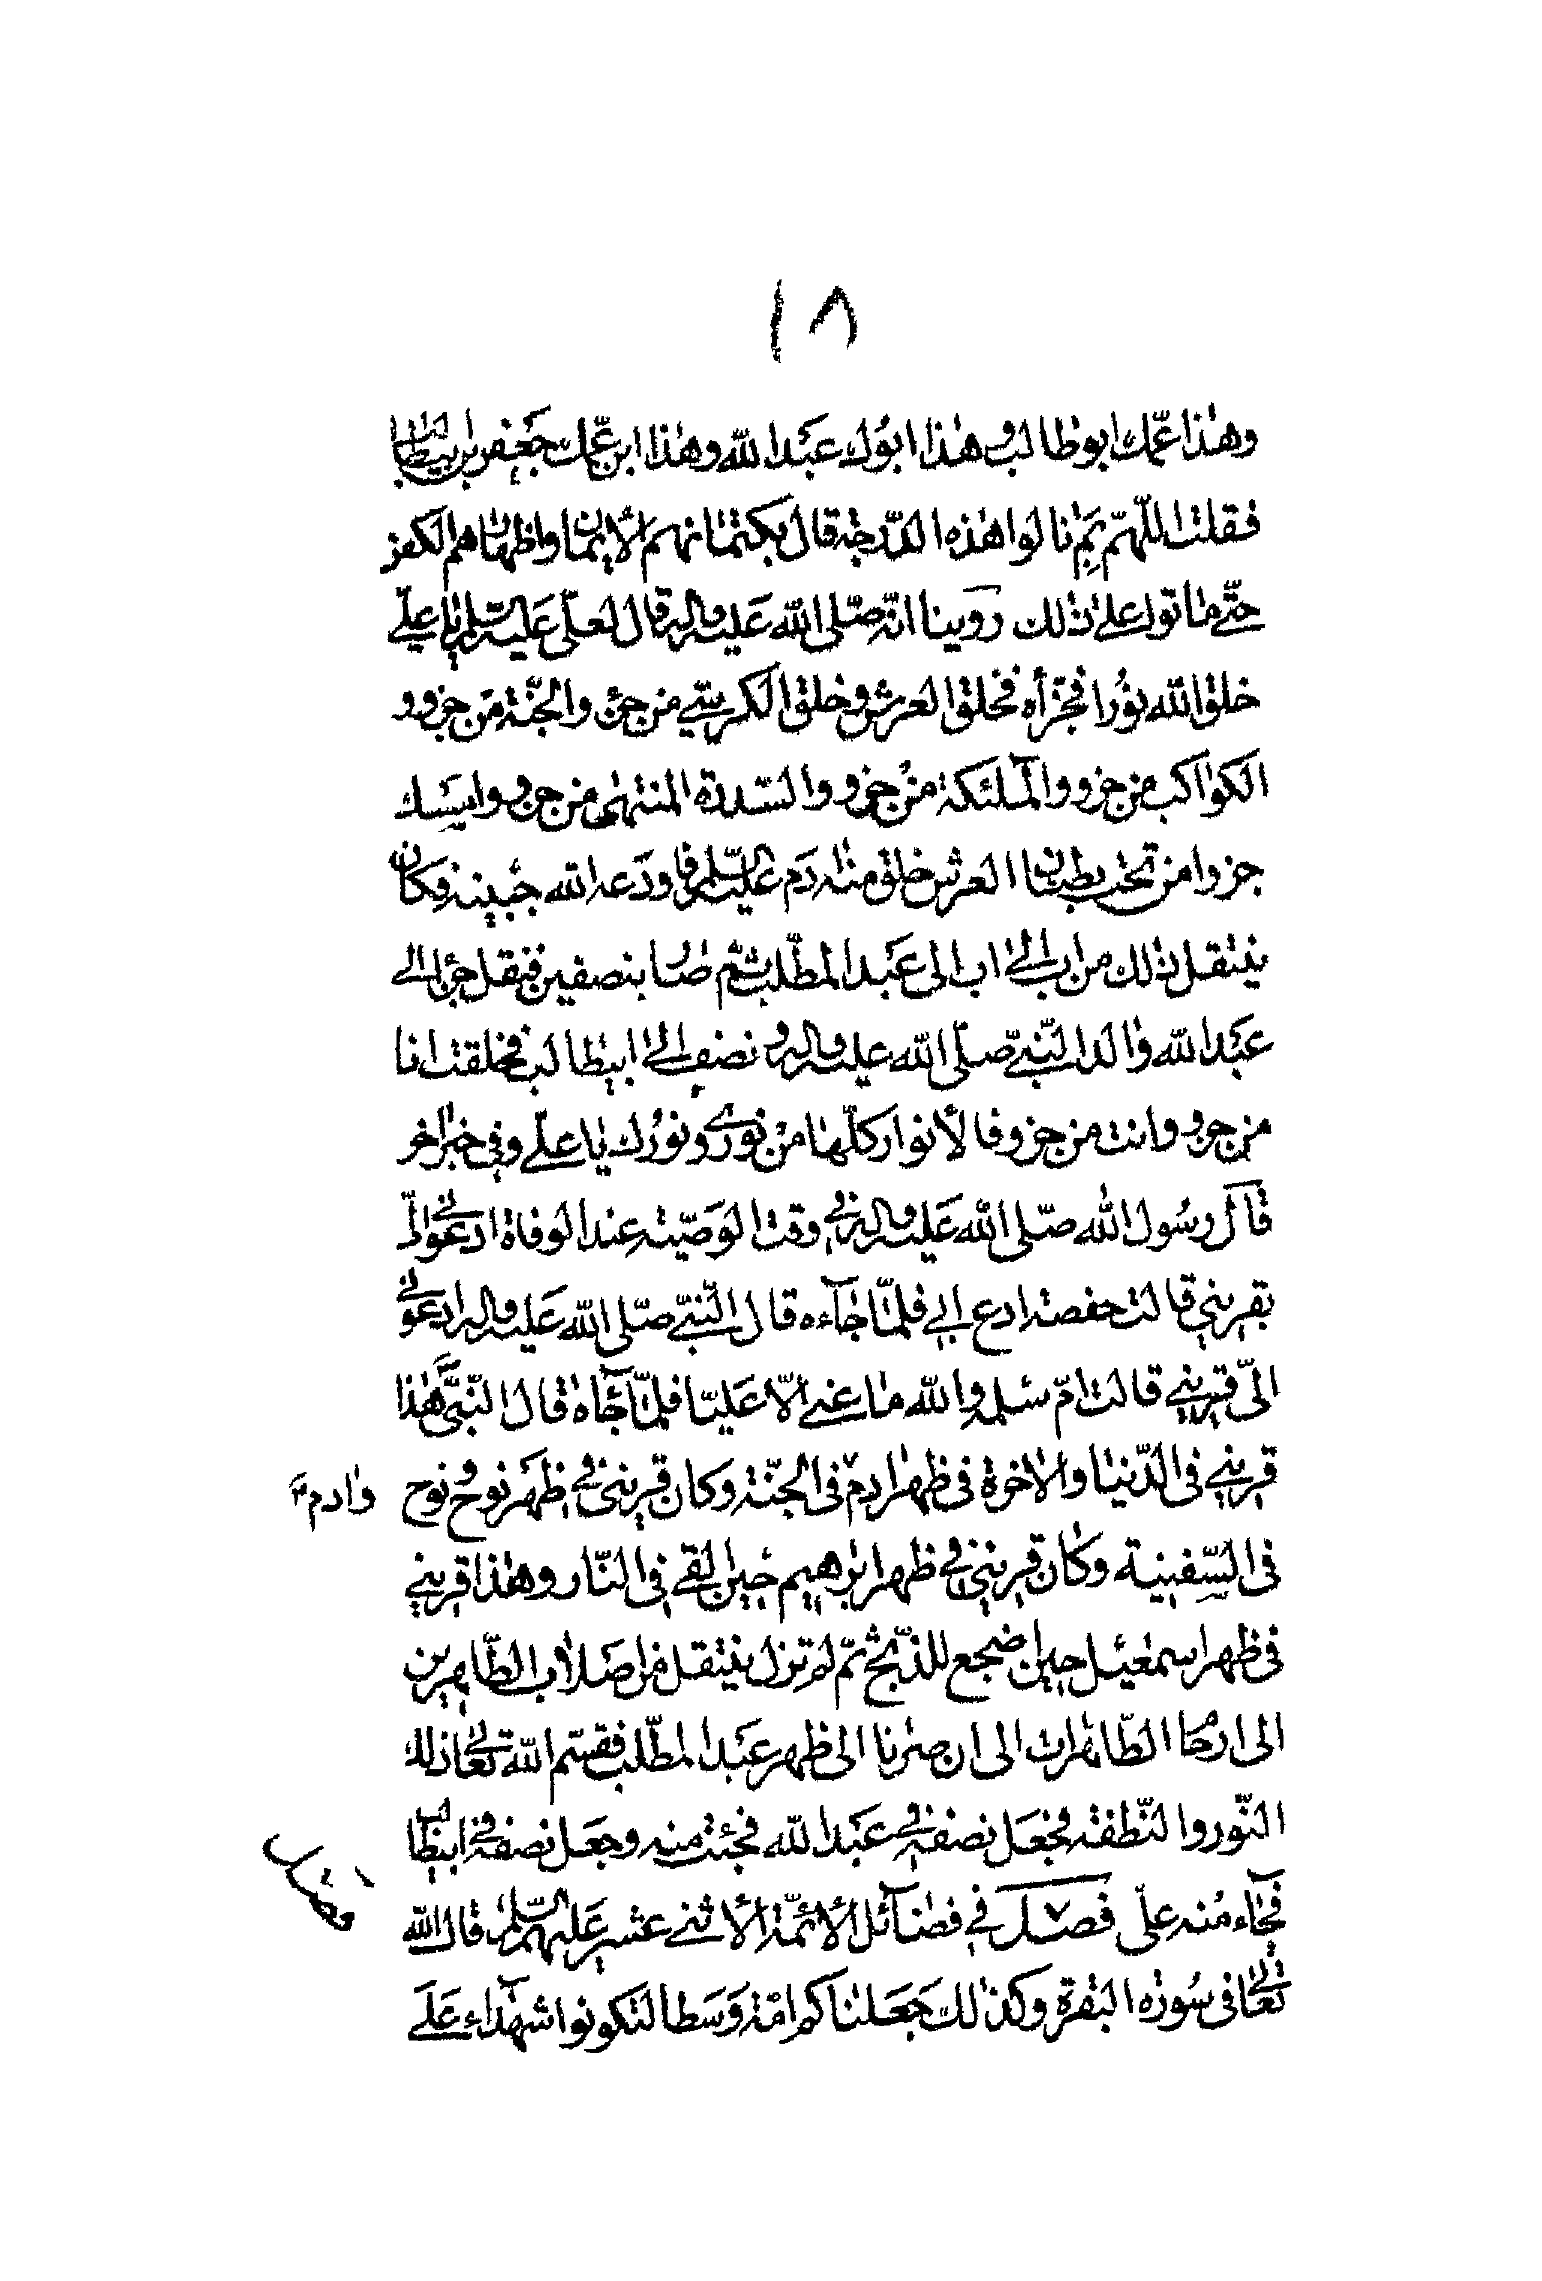 ١٨
وهذا عمّك ابوطالب وهذا ابوك عبد الله وهذا ابن عمّك جعفر بن ابيطالب
فقلت اللّهمّ بم نالوا هذه الدّرجة قال بكتمانهم الأيمان واظهارهم الكفر
حتّى ماتوا على ذلك روينا انّه صلّى الله عليه واله قال لعلّي عليه السّلم يا علي
خلق الله نورا فجزّأه فخلق العرش وخلق الكرسيّ من جزء والجنّة من جزو و
الكواكب من جزو والملئكة من جزو والسّدرة المنتهى من جزو وامسك
جزوا من تحت بطنان العرش خلق منه ادم عليه السّلم فاودعه الله جبينه فكان
ينتقل ذلك من اب الى اب الى عبد المطّلب ثمّ صار بنصفين فنقل جزء الى
عبد الله والد النّبيّ صلّى الله عليه واله ونصف الى ابيطالب فخلقت انا
من جزو وانت من جزو فالأنوار كلّها من نوري ونورك يا علي وفي خبر اخر
قال رسول الله صلّى الله عليه واله في وقت الوصيّة عند الوفاة ادعوا لي
بقريني قالت حفصة ادع ابي فلمّا جاءه قال النّبيّ صلّى الله عليه واله ادعوا
اليّ قريني قالت امّ سلمه والله ما عنى الّا عليّا فلمّا جاءه قال النّبيّ هذا
قريني فى الدّنيا والاخرة فى ظهر ادم فى الجنّة وكان قريني في ظهر نوح ونوح
وادم
فى السّفينة وكان قريني في ظهر ابرهيم حين القي فى النّار وهذا قريني
فى ظهر اسمعيل حين اضجع للذّبح ثمّ لم تزل ينتقل من اصلاب الطّاهرين
الى ارحام الطّاهرات الى ان صرنا الى ظهر عبد المطّلب فقسم الله تعالى ذلك
النّور والنّطفة فجعل نصفه في عبد الله فجئت منه وجعل نصفه في ابيطالب
فجاء منه علي فصل في فضائل الأئمّة الأثنى عشر عليهم السّلم قال الله
تعالى فى سورة البقرة وكذلك جعلناكم امّة وسطا لتكونوا شهداء على